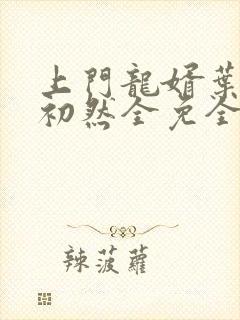 上門龍婿葉
初然全免全
辣菠蘿